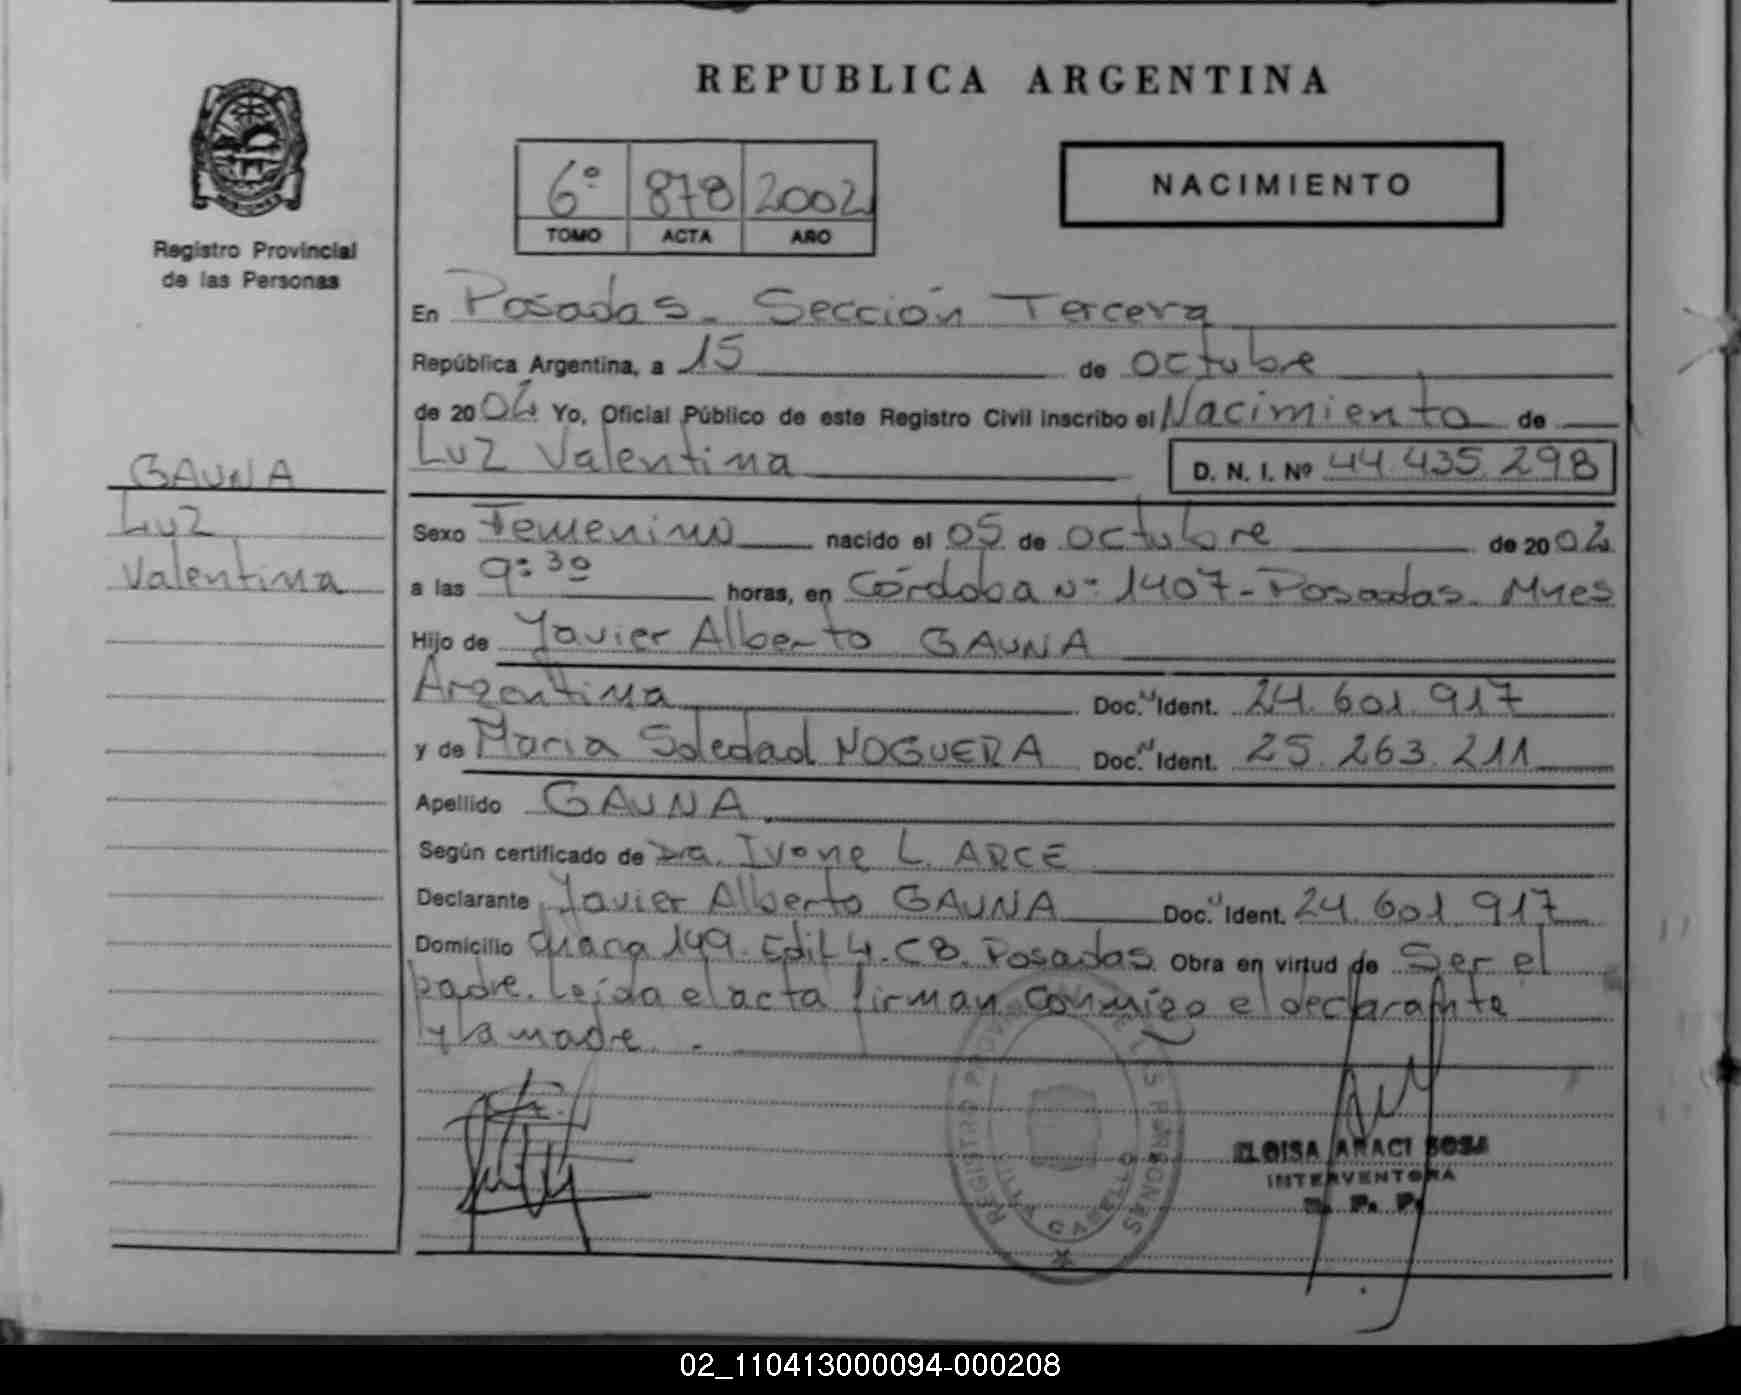 REPUBLICA ARGENTINA
6º 878 2002
TOMO ACTA AÑO
NACIMIENTO
Registro Provincial
de las Personas
En Posadas - Sección Tercera
República Argentina, a 15 de octubre
de 2002 Yo, Oficial Público de este Registro Civil inscribo el Nacimiento de
Luz Valentina D. N. I. Nº 44.435.298
GAUNA
Luz
Valentina
Sexo Femenino nacido el 05 de octubre de 2002
a las 9:30 horas, en Córdoba Nº 1407 - Posadas - Mnes
Hijo de Javier Alberto GAUNA
Argentina Doc. N Ident. 24.601.917
y de Maria Soledad NOGUERA Doc. N Ident. 25.263.211
Apellido GAUNA
Según certificado de Dra. Ivone L. ARCE
Declarante Javier Alberto GAUNA Doc. N Ident. 24.601.917
Domicilio Chacra 149. Edif 4. C8. Posadas Obra en virtud de Ser el
padre. Leída el acta firman conmigo el declarante
y la madre. -
REGISTRO PROVINCIAL DE LAS PERSONAS
ELOISA ARACI SOSA
INTERVENTORA
R. P. P.
02_110413000094-000208